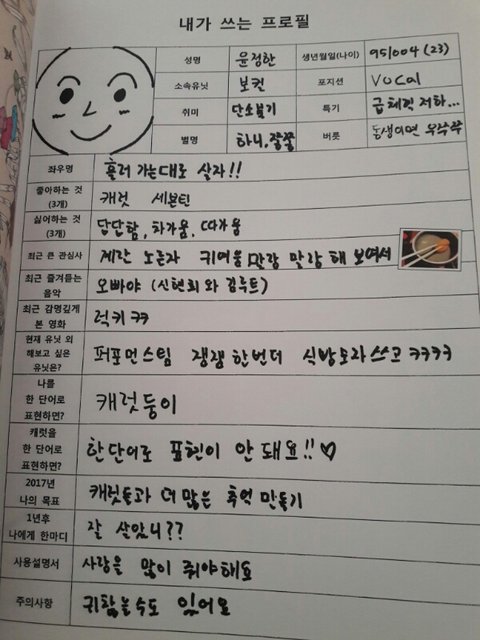 내가 쓰는 프로필
성명 윤정한 생년월일(나이) 951004 (23)
소속유닛 보컨 포지션 VOCal
취미 단소불기 특기 급체력저하...
별명 하니, 쭝쭝 버릇 동생이면 우쭈쭈
좌우명 흘러 가는대로 살자!!
좋아하는 것 (3개) 캐럿 세븐틴
싫어하는 것 (3개) 답답함, 차가움, 따가움
최근 큰 관심사 계란 노른자 귀여움 말랑 말랑해 보여서
최근 즐겨듣는 음악 오빠야 (신현희와 김루트)
최근 감명깊게 본 영화 럭키 ㅋㅋ
현재 유닛 외 해보고 싶은 유닛은? 퍼포먼스팀 쟁쟁 한번더 식방모자쓰고 ㅋㅋㅋㅋ
나를 한 단어로 표현하면? 캐럿둥이
캐럿을 한 단어로 표현하면? 한단어로 표현이 안 돼요!!♡
2017년 나의 목표 캐럿들과 더 많은 추억 만들기
1년후 나에게 한마디 잘 살았니??
사용설명서 사랑을 많이 줘야해요
주의사항 귀찮을수도 있어요